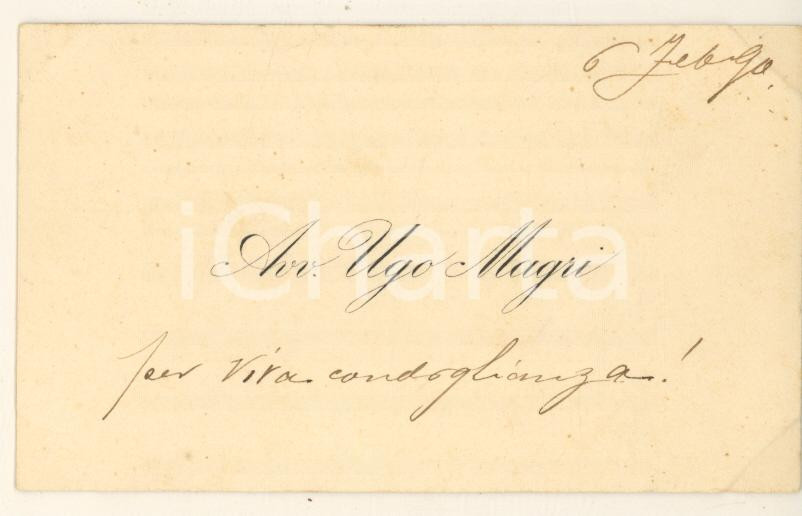 6 Feb 90.
iCharta
Avv. Ugo Magri
per viva condoglianza!